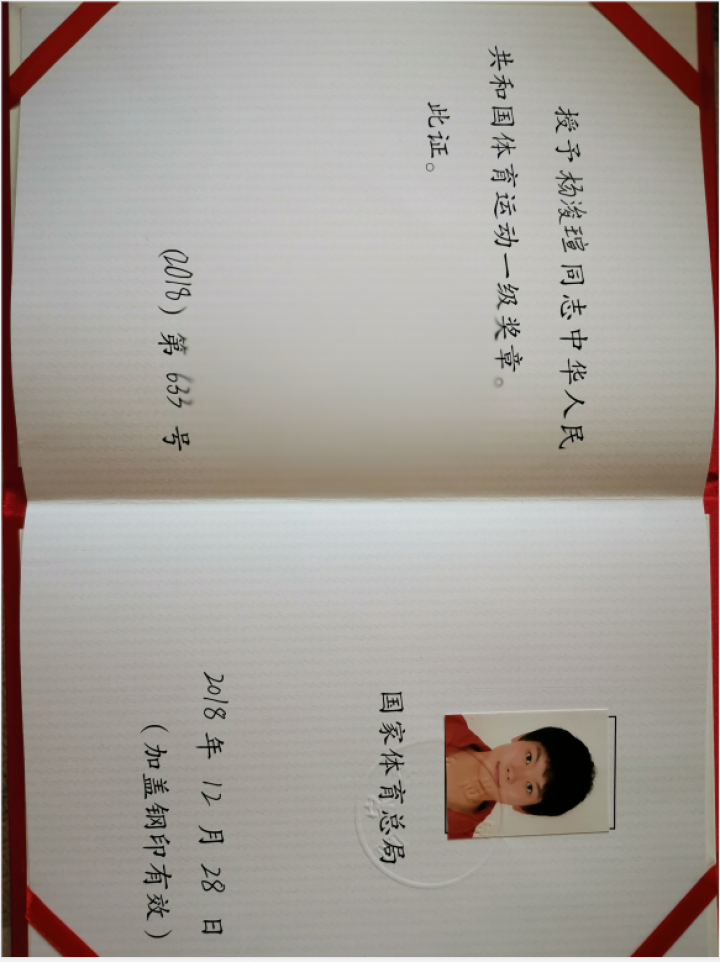 授予杨浚瑄同志中华人民
共和国体育运动一级奖章。
此证。
(2018)第 633 号
国家体育总局
2018 年 12 月 28 日
(加盖钢印有效)